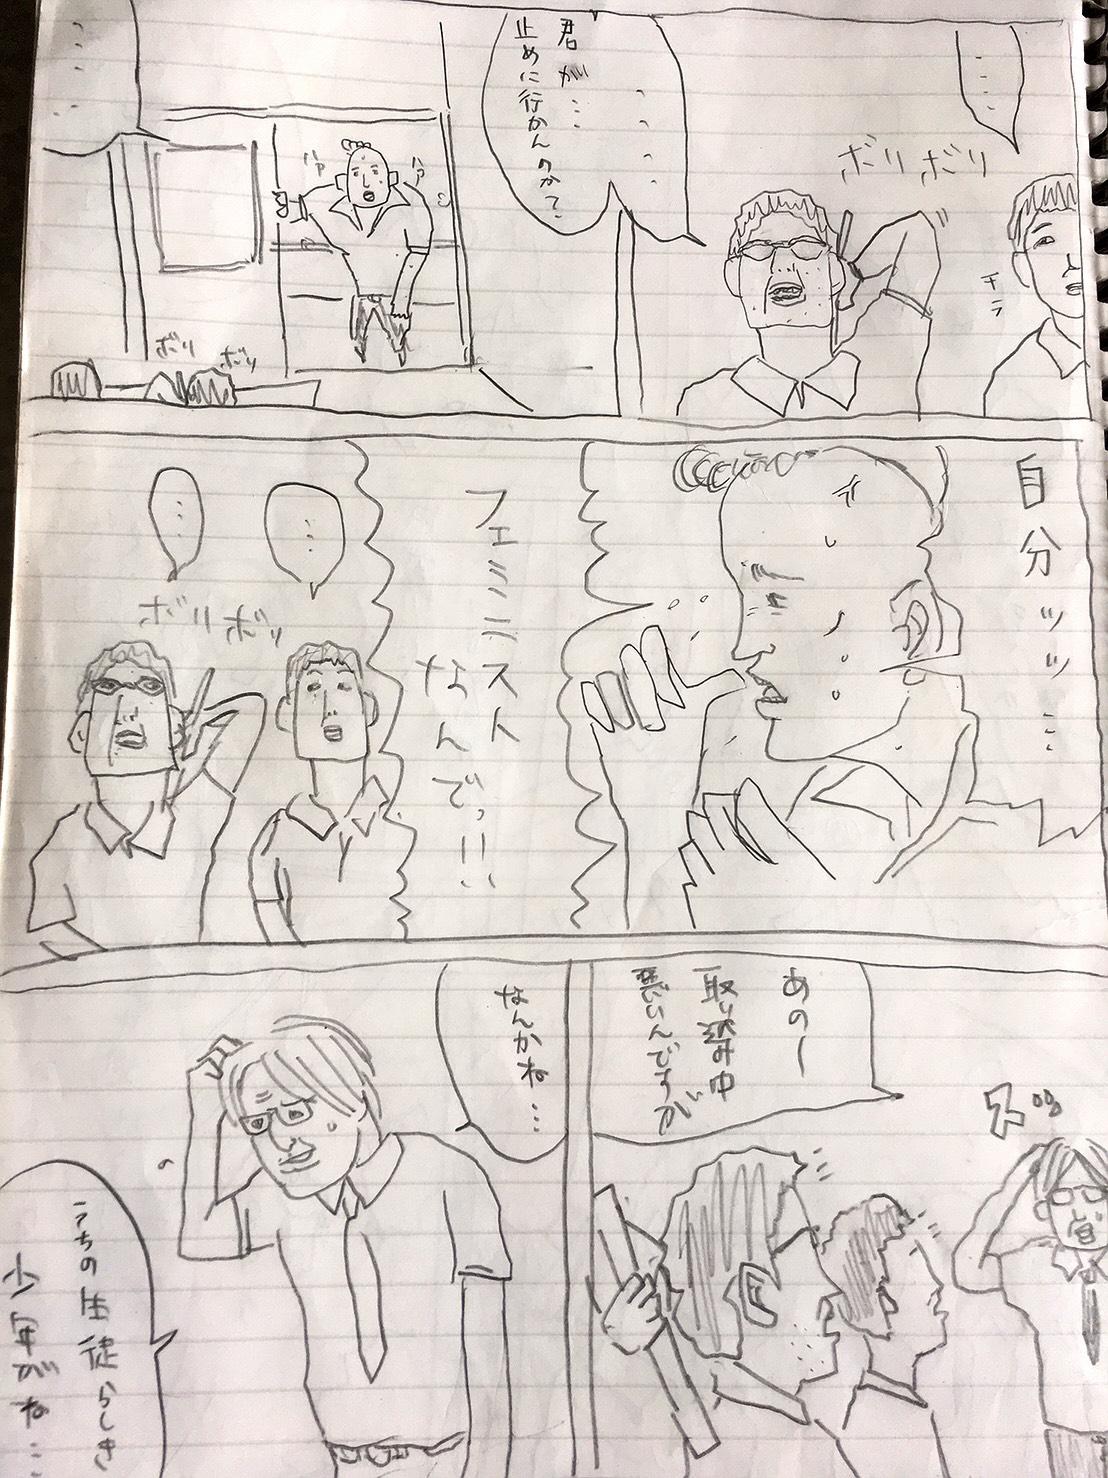 ……
ボリボリ
チラ
……
君が…
止めに行かんのかて…
ハァ
ハァ
……
ボリ
ボリ
自分ッッ…
フェミニスト
なんでっ!!
…
…
ボリボリ
ヌッ
あのー
取り込み中
悪いんですが
なんかね…
うちの生徒らしき
少年がね…